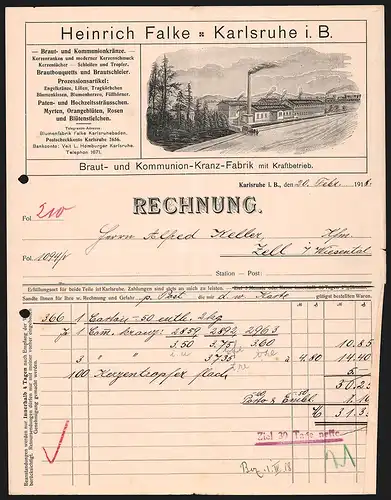 Heinrich Falke Karlsruhe i. B.
— Braut- und Kommunionkränze. —
Kerzenranken und moderner Kerzenschmuck
Kerzentücher — Schleifen und Tropfer.
Brautbouquetts und Brautschleier.
Prozessionsartikel:
Engelkränze, Lilien, Tragkörbchen
Blumenkissen, Blumenherzen, Füllhörner.
Paten- und Hochzeitssträusschen.
Myrten, Orangenblüten, Rosen
und Blütenstielchen.
Telegramm-Adresse:
Blumenfabrik Falke Karlsruhebaden.
Postscheckkonto Karlsruhe 2656.
Bankkonto: Veit L. Homburger Karlsruhe.
Telephon 1671.
Braut- und Kommunion-Kranz-Fabrik mit Kraftbetrieb.
Karlsruhe i. B., den 20. Febr. 1918.
RECHNUNG.
Fol. 210
Herrn Alfred Keller, Kfm.
Fol. 1094/8
Zell i/Wiesental
Station — Post:
Erfüllungsort für beide Teile ist Karlsruhe. Zahlungen sind stets an mich zu leisten.
Sandte Ihnen für Ihre w. Rechnung und Gefahr p. Post die mit d. w. Karte gütigst bestellten Waren.
366 1 Carton - 50 enth. 2 kg
Je 1 Com. kranz: 2859 2892 2963
3.50 3.75 3.60 10.85
3 " " 3735 à 4.80 14.40
100 Kerzentropfer flach
Porto & Embl.
Ziel 30 Tage netto.